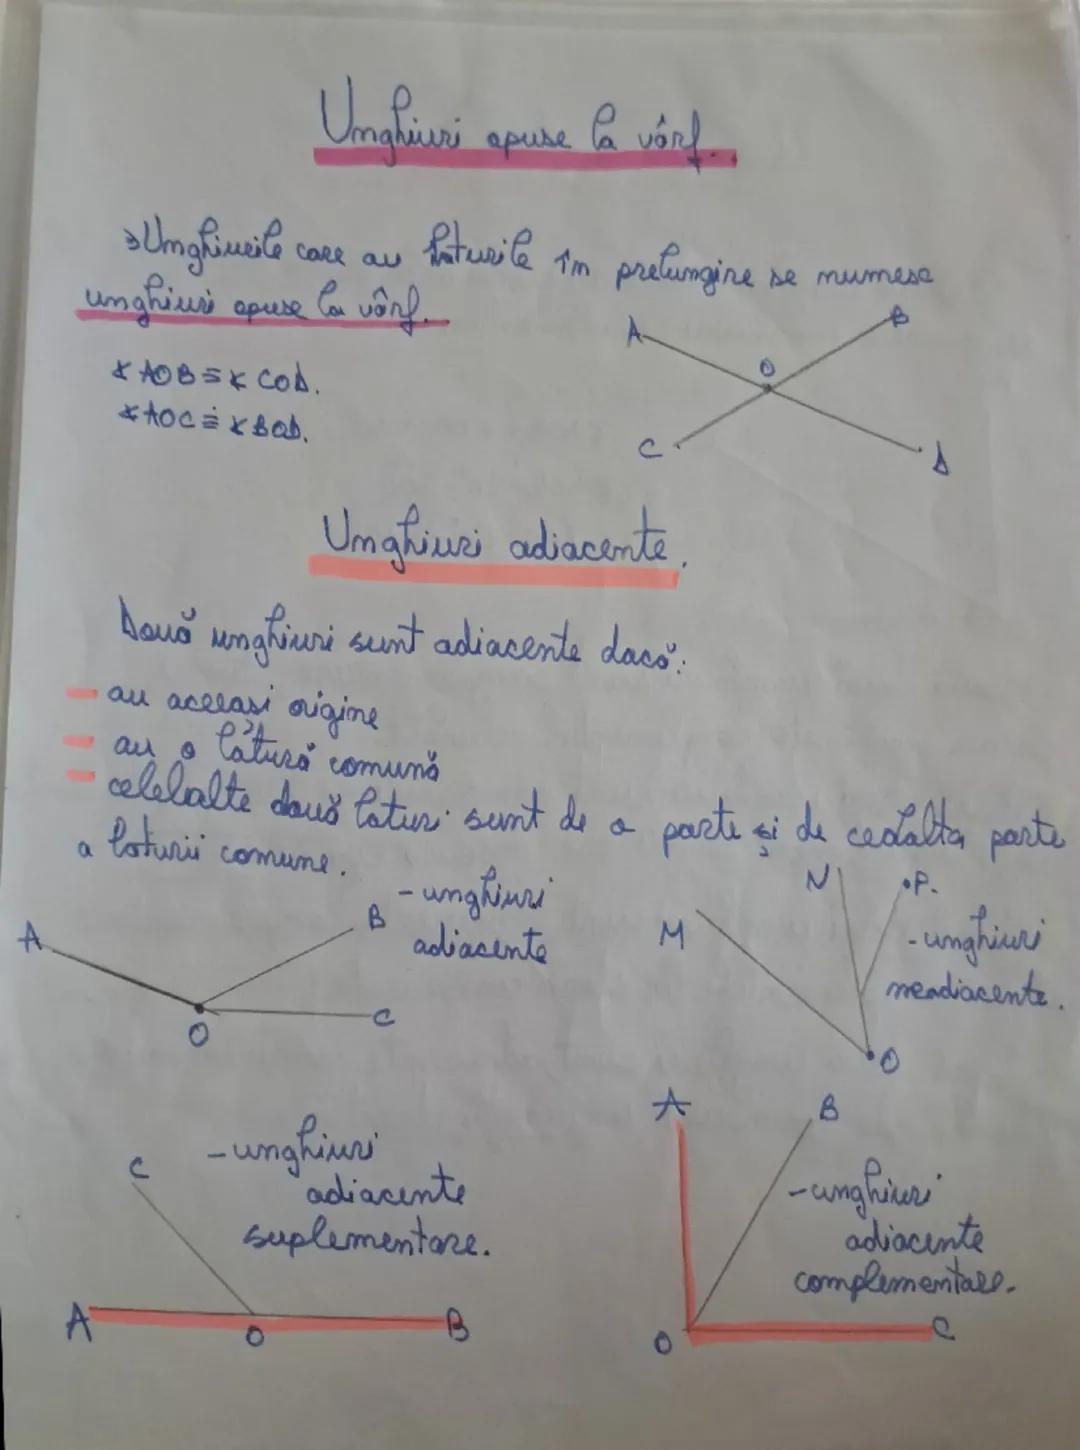 Unghiuri opuse la vârf.
Unghiurile care au laturile în prelungire se numesc
unghiuri opuse la vârf.
A
B
∢AOB ≡ ∢COD.
O
∢AOC ≡ ∢BOD.
C
D
Unghiuri adiacente.
Două unghiuri sunt adiacente dacă:
- au aceeasi origine
- au o latură comună
- celelalte două laturi sunt de o parte și de cealalta parte
a laturii comune.
A
B
- unghiuri
adiacente
O
C
N
P.
M
- unghiuri
neadiacente.
O
C
- unghiuri
adiacente
suplementare.
A
O
B
A
B
- unghiuri
adiacente
complementare.
O
C